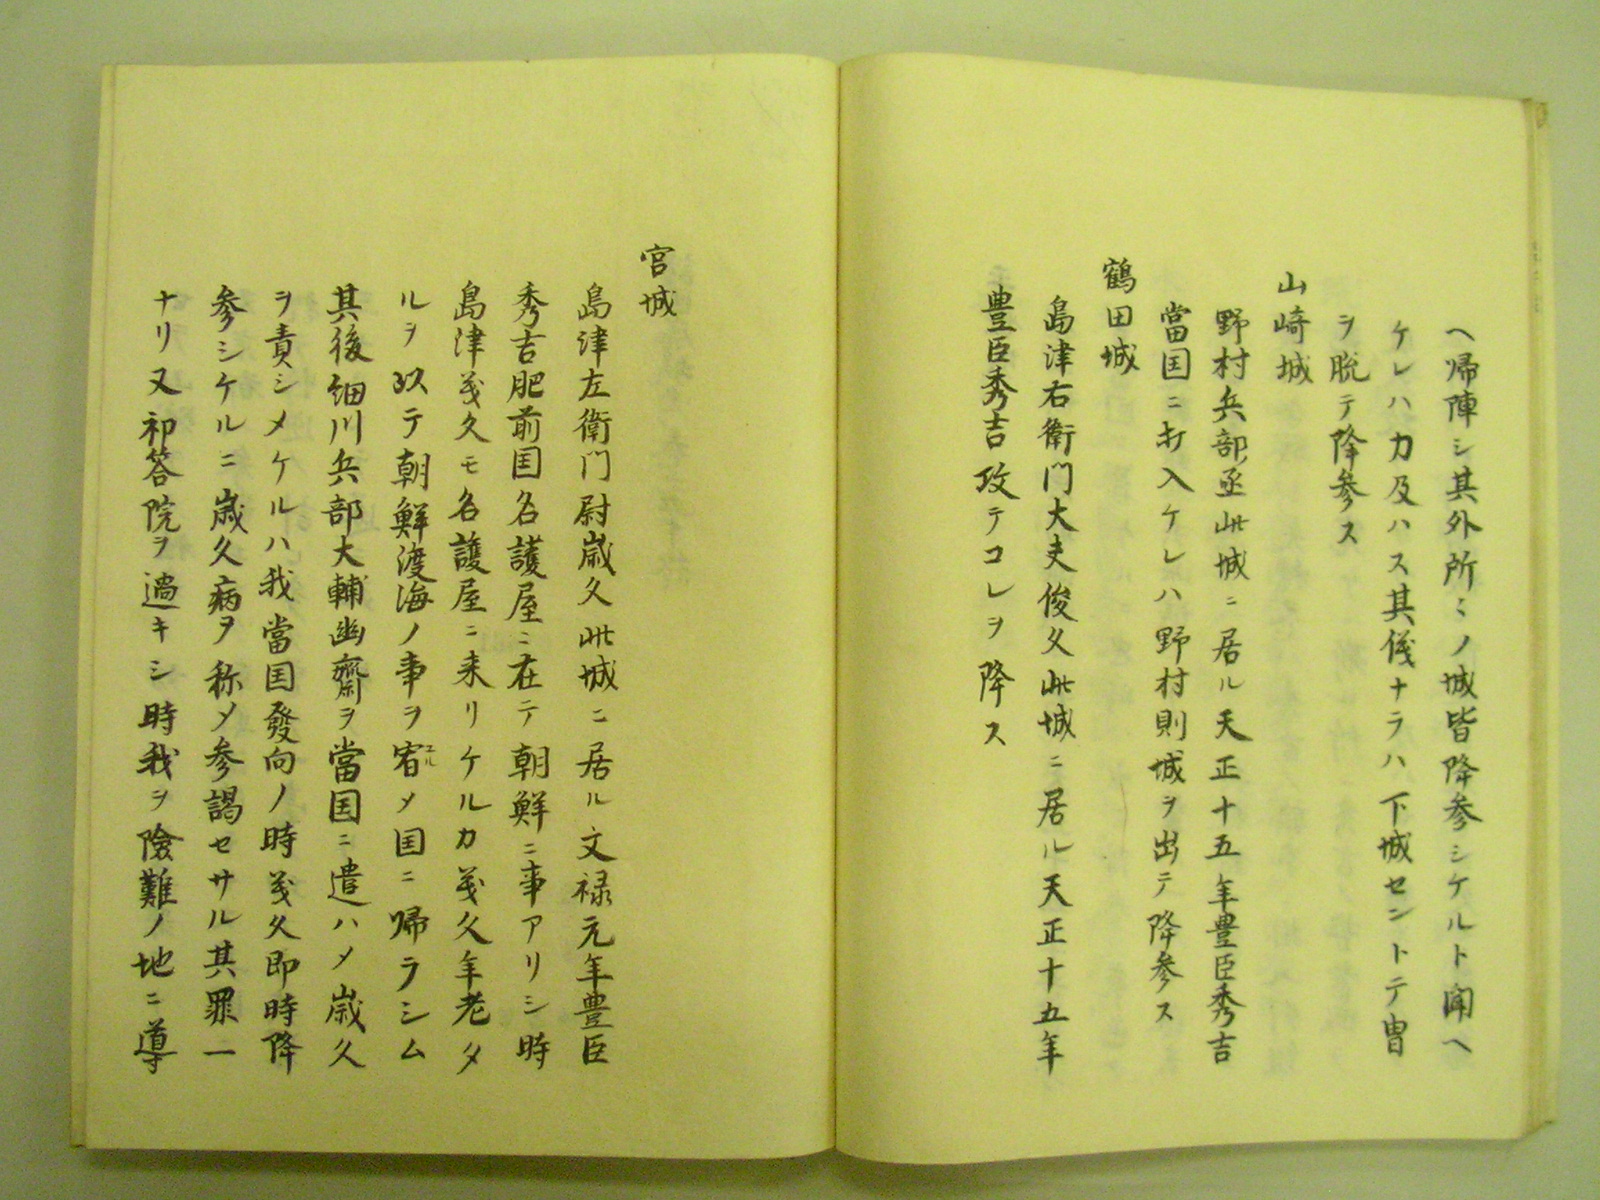 ヘ帰陣シ其外所〻ノ城皆降参シケルト聞ヘ
ケレハ力及ハス其儀ナラハ下城セントテ冑
ヲ脱テ降参ス
山崎城
野村兵部丞此城ニ居ル天正十五年豊臣秀吉
當国ニ打入ケレハ野村則城ヲ出テ降参ス
鶴田城
島津右衛門大夫俊久此城ニ居ル天正十五年
豊臣秀吉攻テコレヲ降ス
宮城
島津左衛門尉歳久此城ニ居ル文禄元年豊臣
秀吉肥前国名護屋ニ在テ朝鮮ニ事アリシ時
島津義久モ名護屋ニ来リケルカ義久年老タ
ルヲ以テ朝鮮渡海ノ事ヲ宥メ国ニ帰ラシム
ユル
其後細川兵部大輔幽齋ヲ當国ニ遣ハメ歳久
ヲ責シメケルハ我當国發向ノ時義久即時降
参シケルニ歳久病ヲ称メ参謁セサル其罪一
ナリ又祁答院ヲ過キシ時我ヲ險難ノ地ニ導